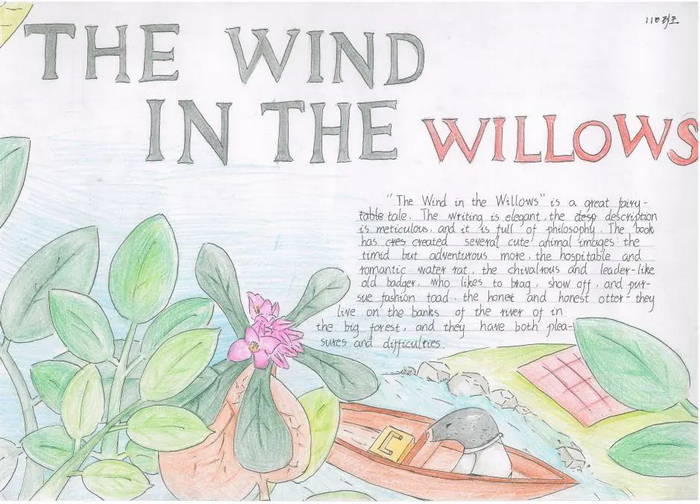 THE WIND
IN THE WILLOWS
"The Wind in the Willows" is a great fairy-
table tale. The writing is elegant, the desp description
is meticulous, and it is full of philosophy. The book
has cres created several cute animal images: the
timid but adventurous more, the hospitable and
romantic water rat, the chivalrous and leader-like
old badger, who likes to brag, show off, and pur-
sue fashion toad, the honet and honest otter- they
live on the banks of the river of in
the big forest, and they have both plea-
sures and difficulties.